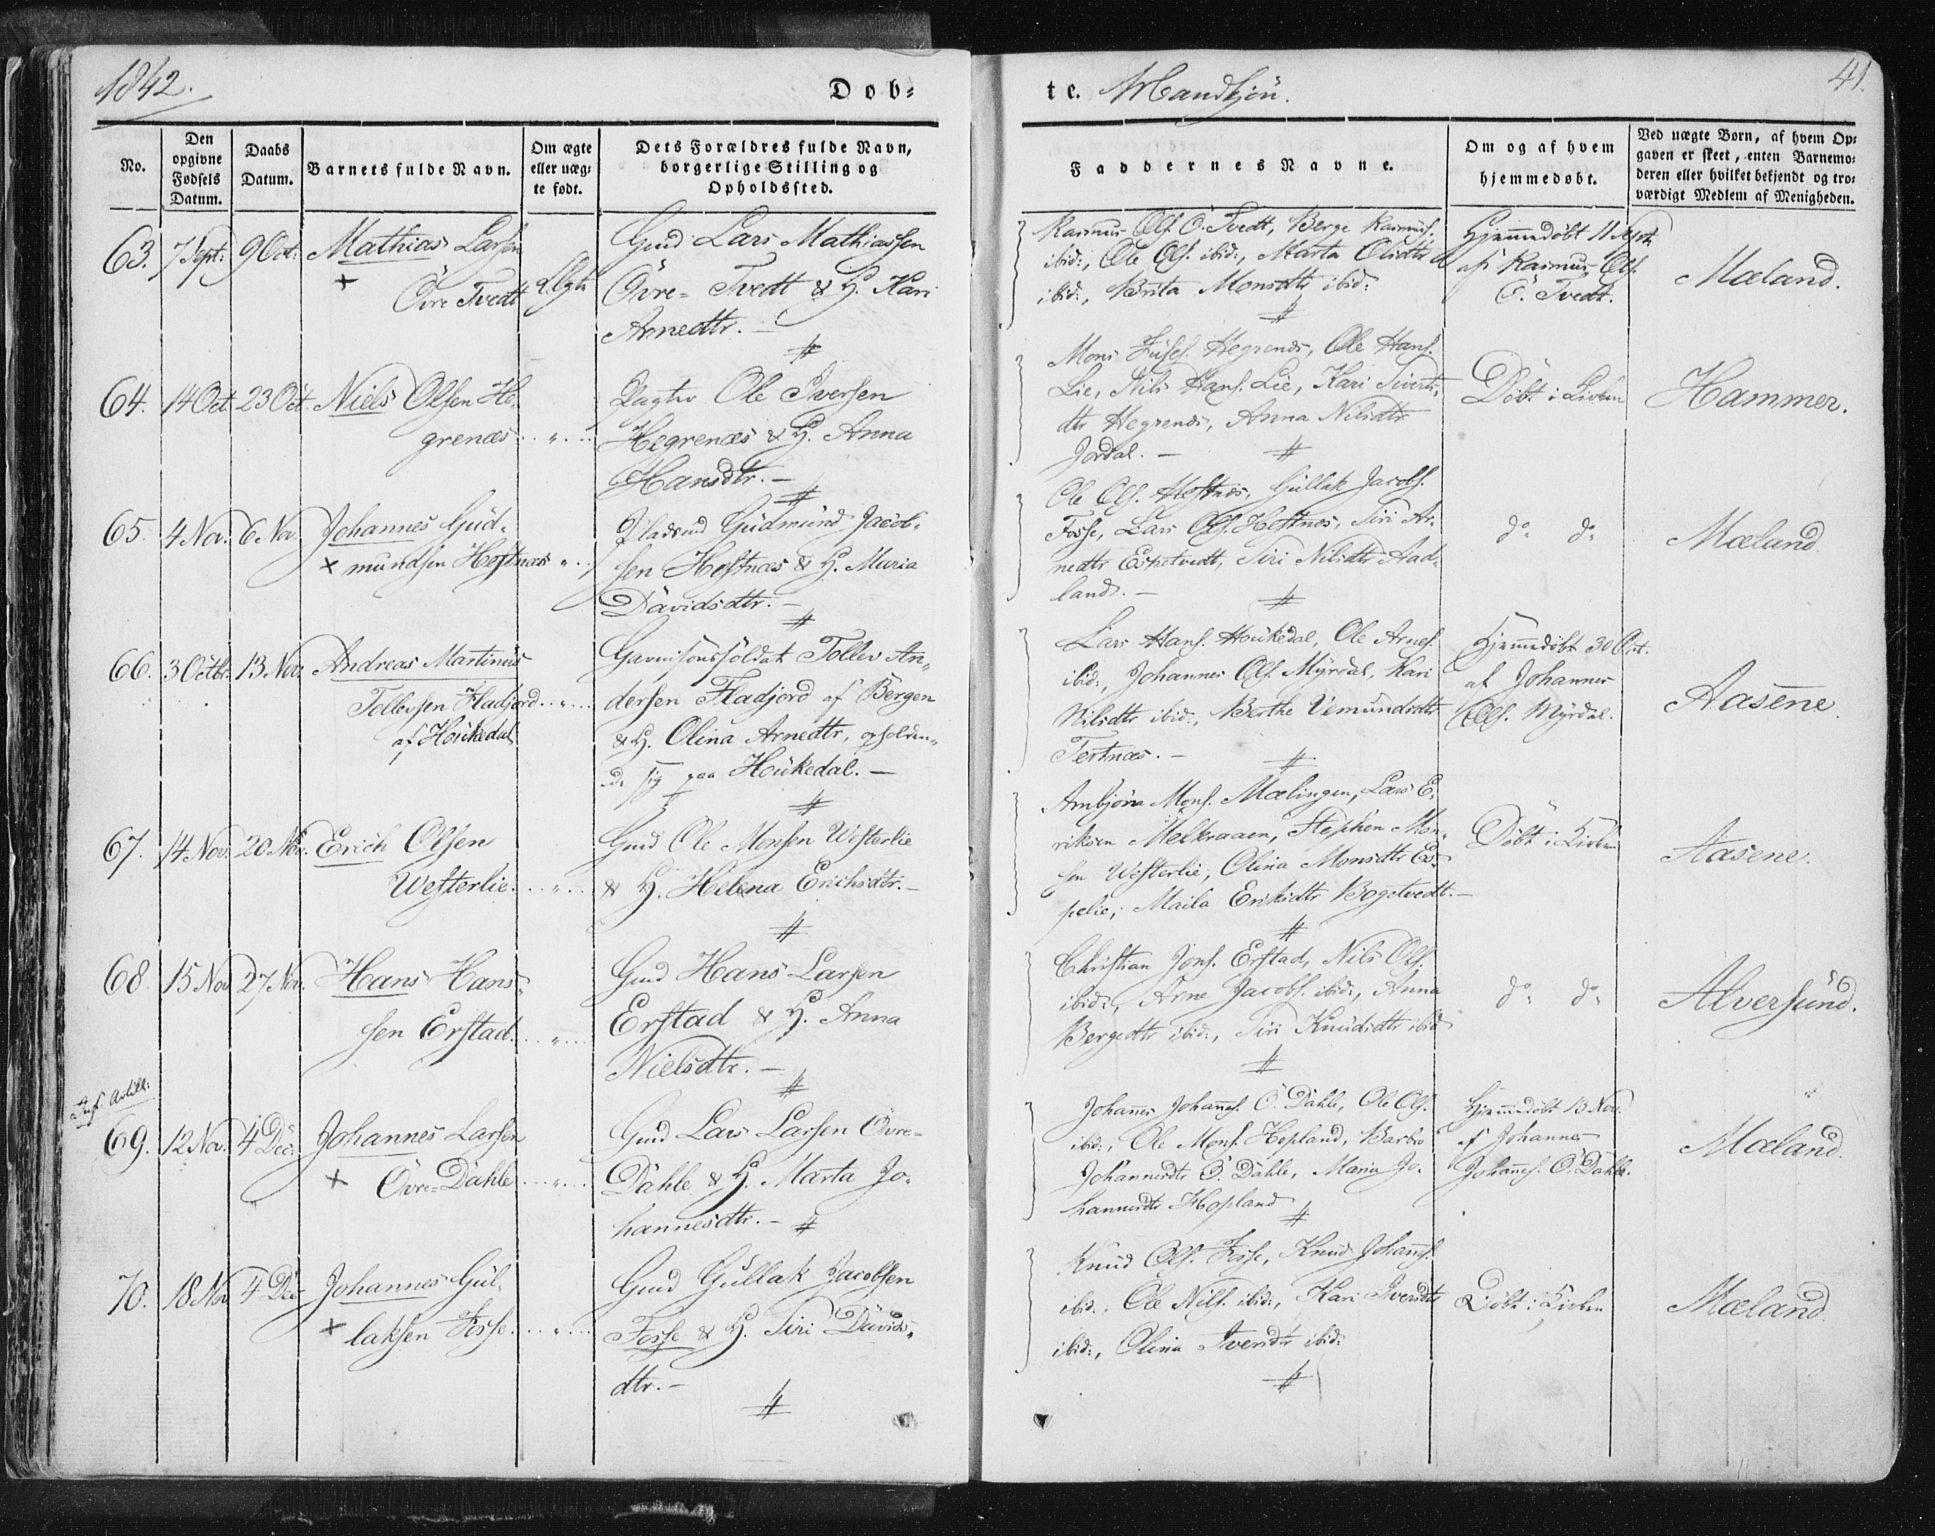 1842.
Døb-
te. Mandkjön.
41.
No.
Den opgivne Fødsels Datum.
Daabs Datum.
Barnets fulde Navn.
Om ægte eller uægte født.
Dets Forældres fulde Navn, borgerlige Stilling og Opholdssted.
Faddernes Navne.
Om og af hvem hjemmedøbt.
Ved uægte Børn, af hvem Opgaven er skeet, enten Barnemoderen eller hvilket bekjendt og troværdigt Medlem af Menigheden.
63. 7 Sept: 9 Oct: Mathias Larsen
+ Övre Tvedt
Ægte
Gmd Lars Mathiassen
Övre- Tvedt & H. Kari
Arnedtr. -
Rasmus Ols. Ö. Tvedt, Berge Rasmus.
ibid:, Ole Ols. ibid:, Marta Olidtr
ibid:, Brita Monsdtr ibid:
Hjemmedöbt 11 Sept.
af Rasmus Ols.
Ö. Tvedt.
Mæland.
64. 14 Oct 23 Oct. Niels Olsen He-
grenæs
Ole Iversen
Hegrenæs & H. Anna
Hansdtr. -
Mons Hegrenæs, Ole Hans.
Lie, Nils Hans. Lie, Kari Siverts-
dtr Hegrenæs, Anna Nilsdtr
Jordal. -
Döbt i Kirken
Hammer.
65. 4 Nov. 6 Nov. Johannes Gud-
+ mundsen Hestnæs
Pladsmd Gudmund Jacob-
sen Hestnæs & H. Maria
Davidsdtr. -
Ole Ols. Hestnæs, Gullak Jacobs.
Fosse, Lars Ols. Hestnæs, Siri Ar-
nedtr Espetvedt, Siri Nilsdtr Aad-
land. -
do do
Mæland.
66. 3 Octbr. 13 Nov. Andreas Martinus
Tollevsen Fladjord
af Houkedal
Garnisonssoldat Tollev An-
dersen Fladjord af Bergen
& H. Olina Arnedtr, opholden-
de sig paa Houkedal. -
Lars Hans. Houkedal, Ole Arnes.
ibid:, Johannes Ols. Myrdal, Kari
Nilsdtr ibid:, Berthe Vemundsdtr
Tertnæs. -
Hjemmedöbt 30 Oct.
af Johannes
Ols. Myrdal.
Aasene.
67. 14 Nov. 20 Nov. Erich Olsen
Westerlie
Gmd Ole Monsen Westerlie
& H. Helena Erichsdtr. -
Anbjörn Mons. Mælingen, Lars E-
riksen Melkraaen, Stephen Mon-
sen Westerlie, Olina Monsdtr Es-
pelie, Maila Eriksdtr Bogetvedt. -
Döbt i Kirken
Aasene.
68. 15 Nov. 27 Nov. Hans Hans-
sen Erstad
Gmd Hans Larsen
Erstad & H. Anna
Nielsdtr. -
Christian Jons. Erstad, Nils Ols.
ibid:, Arne Jacobs. ibid:, Anna
Bergedtr ibid:, Siri Knudsdtr ibid
do do
Alversund.
69. 12 Nov. 4 Dec: Johannes Larsen
+ Övre-Dahle
Gmd Lars Larsen Övre-
Dahle & H. Marta Jo-
hannesdtr. -
Johannes Johannes. Ö. Dahle, Ole Ols.
ibid:, Ole Mons. Hopland, Barbro
Johannesdtr Ö. Dahle, Maria Jo-
hannesdtr Hopland
Hjemmedöbt 13 Nov.
af Johannes
Johannes. Ö. Dahle.
Mæland.
70. 18 Nov 4 Dec Johannes Gul-
+ laksen Fosse
Gmd Gullak Jacobsen
Fosse & H. Siri Davids-
dtr. -
Knud Ols. Fosse, Knud Johannes.
ibid:, Ole Nils. ibid:, Kari Iversdtr
ibid:, Olina Iversdtr ibid:
Döbt i Kirken
Mæland.